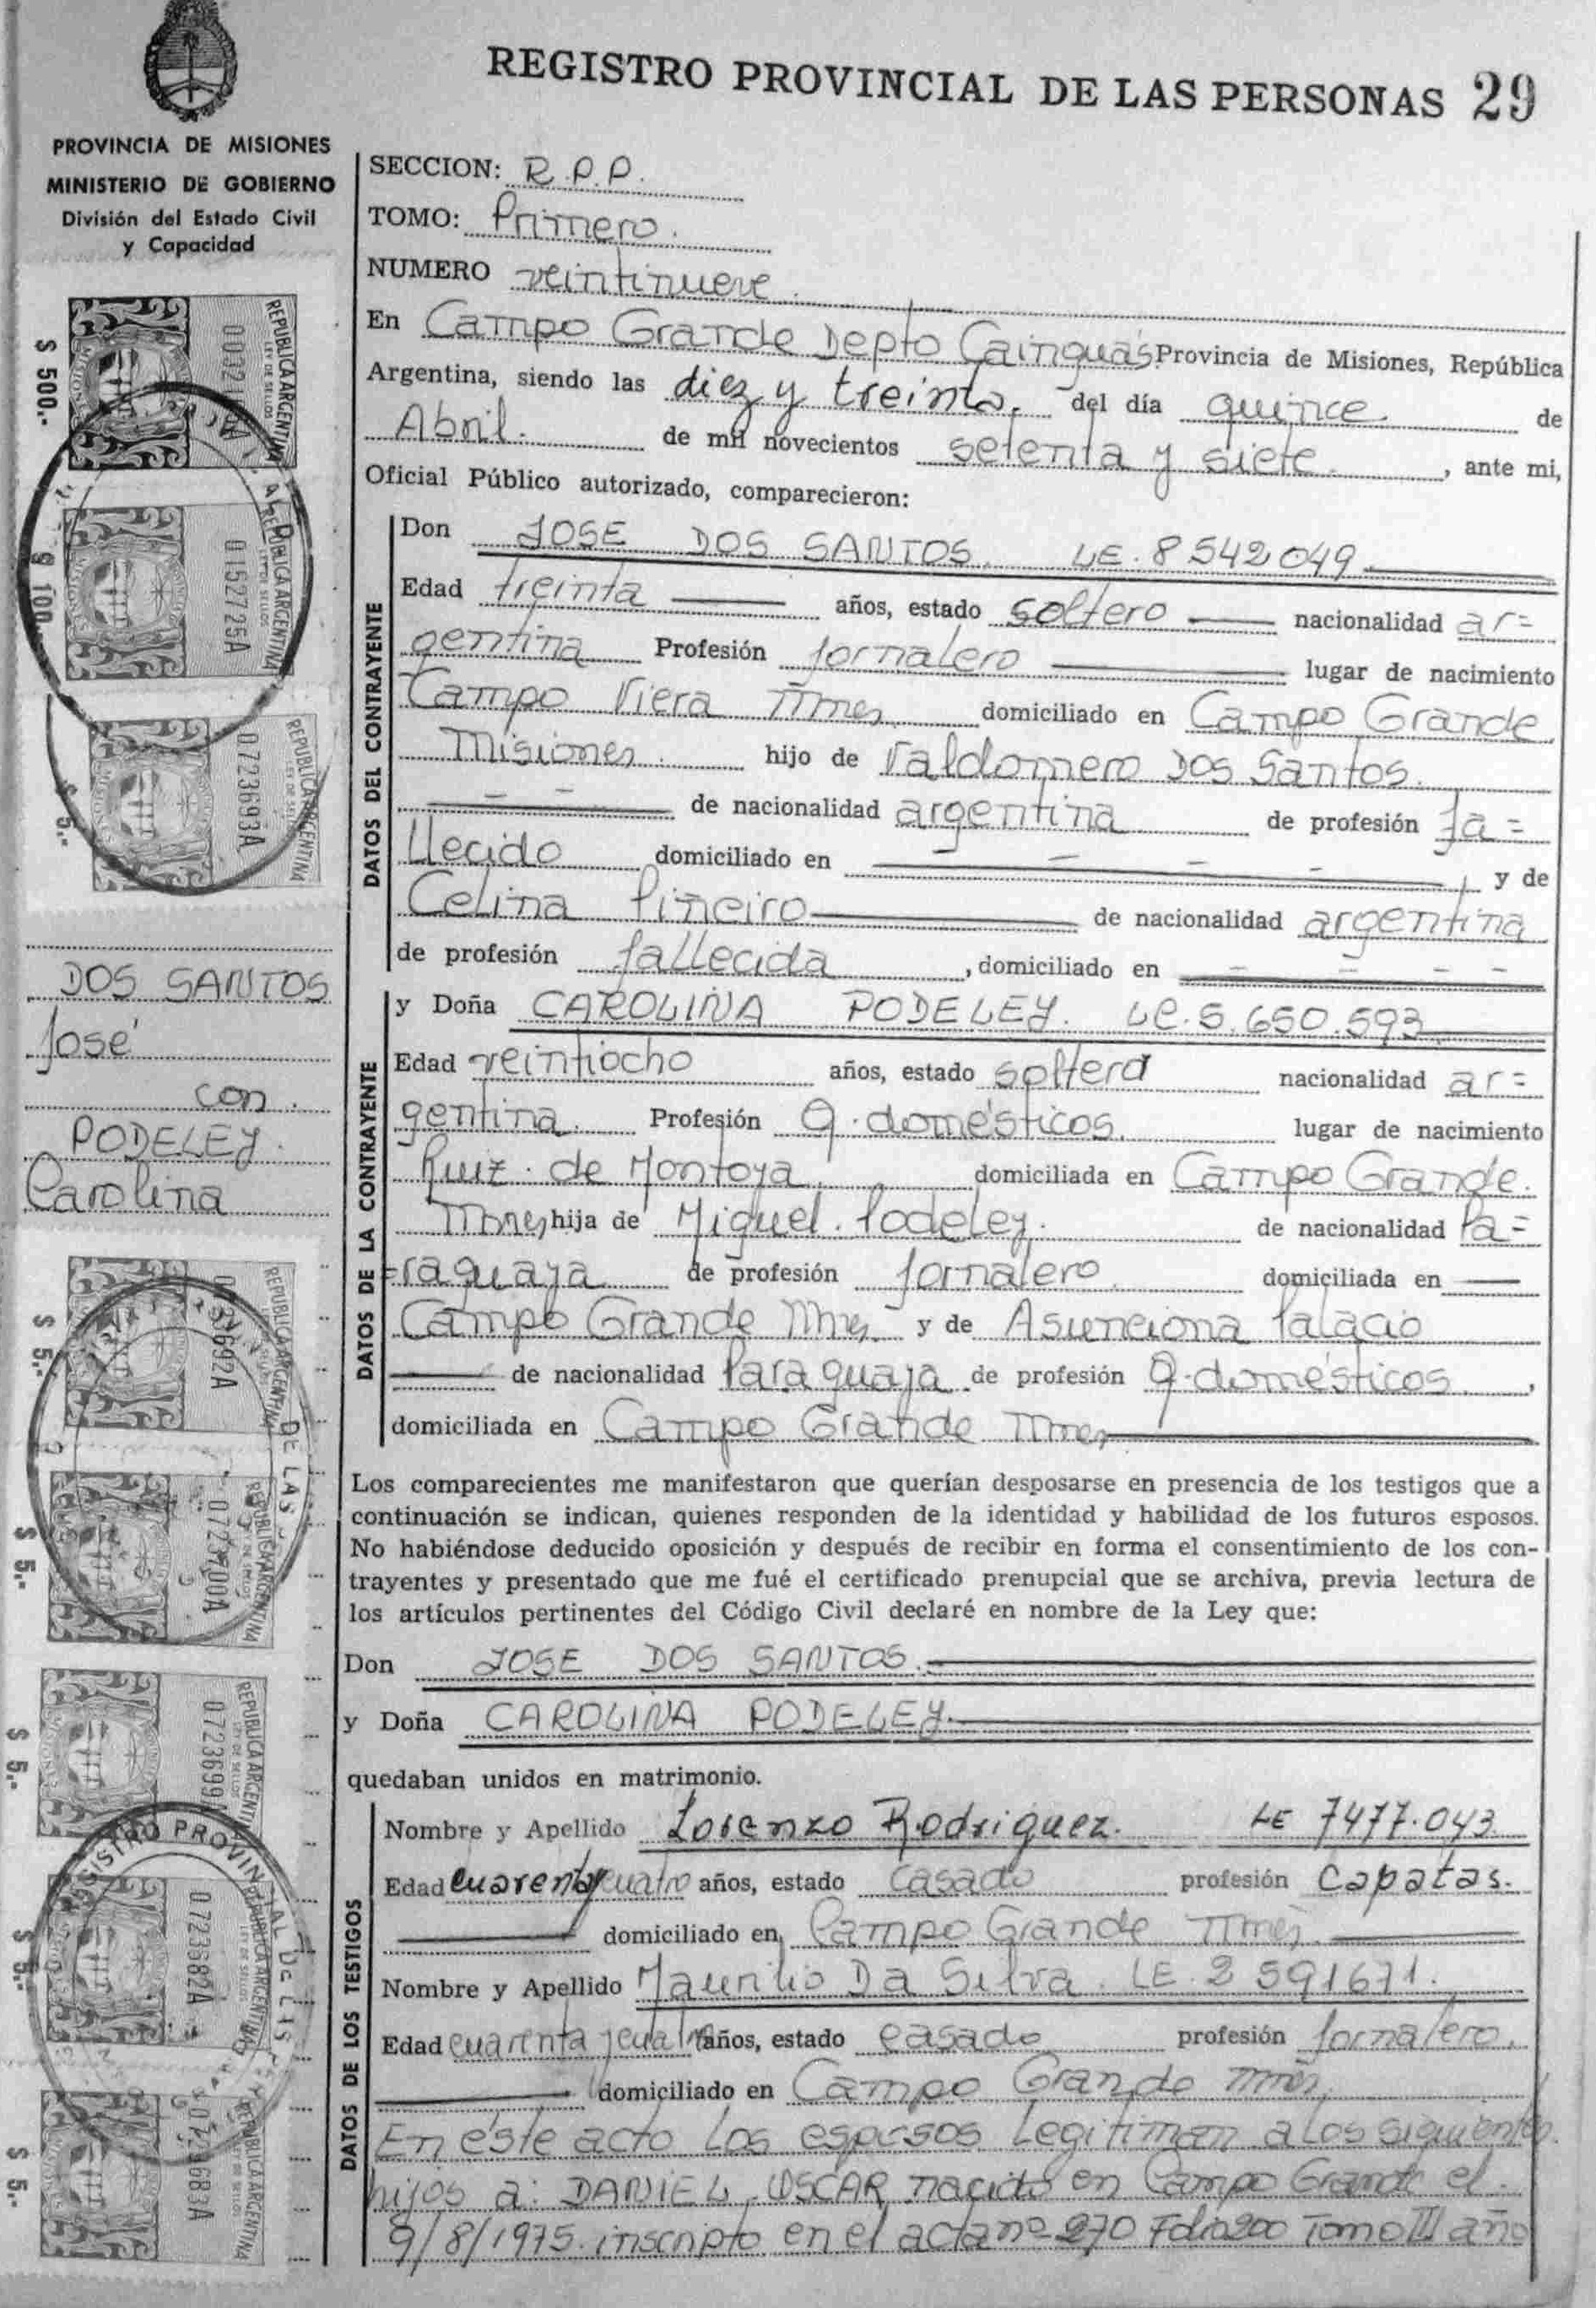 REGISTRO PROVINCIAL DE LAS PERSONAS 29
PROVINCIA DE MISIONES
MINISTERIO DE GOBIERNO
División del Estado Civil
y Capacidad
SECCION: R.P.P.
TOMO: Primero.
NUMERO veintinueve.
En Campo Grande Depto Cainguás Provincia de Misiones, República
Argentina, siendo las diez y treinta. del día quince. de
Abril. de mil novecientos setenta y siete. , ante mi,
Oficial Público autorizado, comparecieron:
DATOS DEL CONTRAYENTE
Don JOSE DOS SANTOS. LE. 8 542 049
Edad treinta años, estado soltero nacionalidad ar=
gentina Profesión Jornalero lugar de nacimiento
Campo Viera Mnes. domiciliado en Campo Grande
Misiones. hijo de Valdomero Dos Santos.
de nacionalidad argentina de profesión fa=
llecido domiciliado en y de
Celina Piñeiro de nacionalidad argentina
de profesión fallecida , domiciliado en
DATOS DE LA CONTRAYENTE
y Doña CAROLINA PODELEY. LC. 5.650.593
Edad veintiocho años, estado soltera nacionalidad ar=
gentina. Profesión Q. domésticos. lugar de nacimiento
Ruiz de Montoya. domiciliada en Campo Grande.
Mnes, hija de Miguel Podeley. de nacionalidad Pa=
=raguaya de profesión Jornalero. domiciliada en
Campo Grande Mnes. y de Asunciona Palacio
de nacionalidad Paraguaya de profesión Q. domésticos ,
domiciliada en Campo Grande Mnes
Los comparecientes me manifestaron que querían desposarse en presencia de los testigos que a
continuación se indican, quienes responden de la identidad y habilidad de los futuros esposos.
No habiéndose deducido oposición y después de recibir en forma el consentimiento de los con-
trayentes y presentado que me fué el certificado prenupcial que se archiva, previa lectura de
los artículos pertinentes del Código Civil declaré en nombre de la Ley que:
Don JOSE DOS SANTOS.
y Doña CAROLINA PODELEY.
quedaban unidos en matrimonio.
DATOS DE LOS TESTIGOS
Nombre y Apellido Lorenzo Rodriguez. LE 7477.043
Edad cuarenta y cuatro años, estado casado profesión capatas.
domiciliado en Campo Grande Mnes.
Nombre y Apellido Maurilio Da Silva. LE. 2 591671.
Edad cuarenta y cuatro años, estado casado profesión Jornalero.
domiciliado en Campo Grande Mnes.
En éste acto los esposos Legitiman a los siguientes
hijos a: DANIEL OSCAR nacido en Campo Grande el
9/8/1975. inscripto en el acta nº 270 Folio 200 Tomo III año
DOS SANTOS
José
con
PODELEY.
Carolina
$ 500.-
REPUBLICA ARGENTINA
LEY DE SELLOS
$ 100.-
REPUBLICA ARGENTINA
LEY DE SELLOS
0152725A
$ 5.-
REPUBLICA ARGENTINA
LEY DE SELLOS
0723693A
$ 5.-
REPUBLICA ARGENTINA
$ 5.-
REPUBLICA ARGENTINA
0723700A
$ 5.-
REPUBLICA ARGENTINA
LEY DE SELLOS
0723699
$ 5.-
REPUBLICA ARGENTINA
LEY DE SELLOS
0723682A
$ 5.-
REPUBLICA ARGENTINA
REGISTRO PROVINCIAL DE LAS